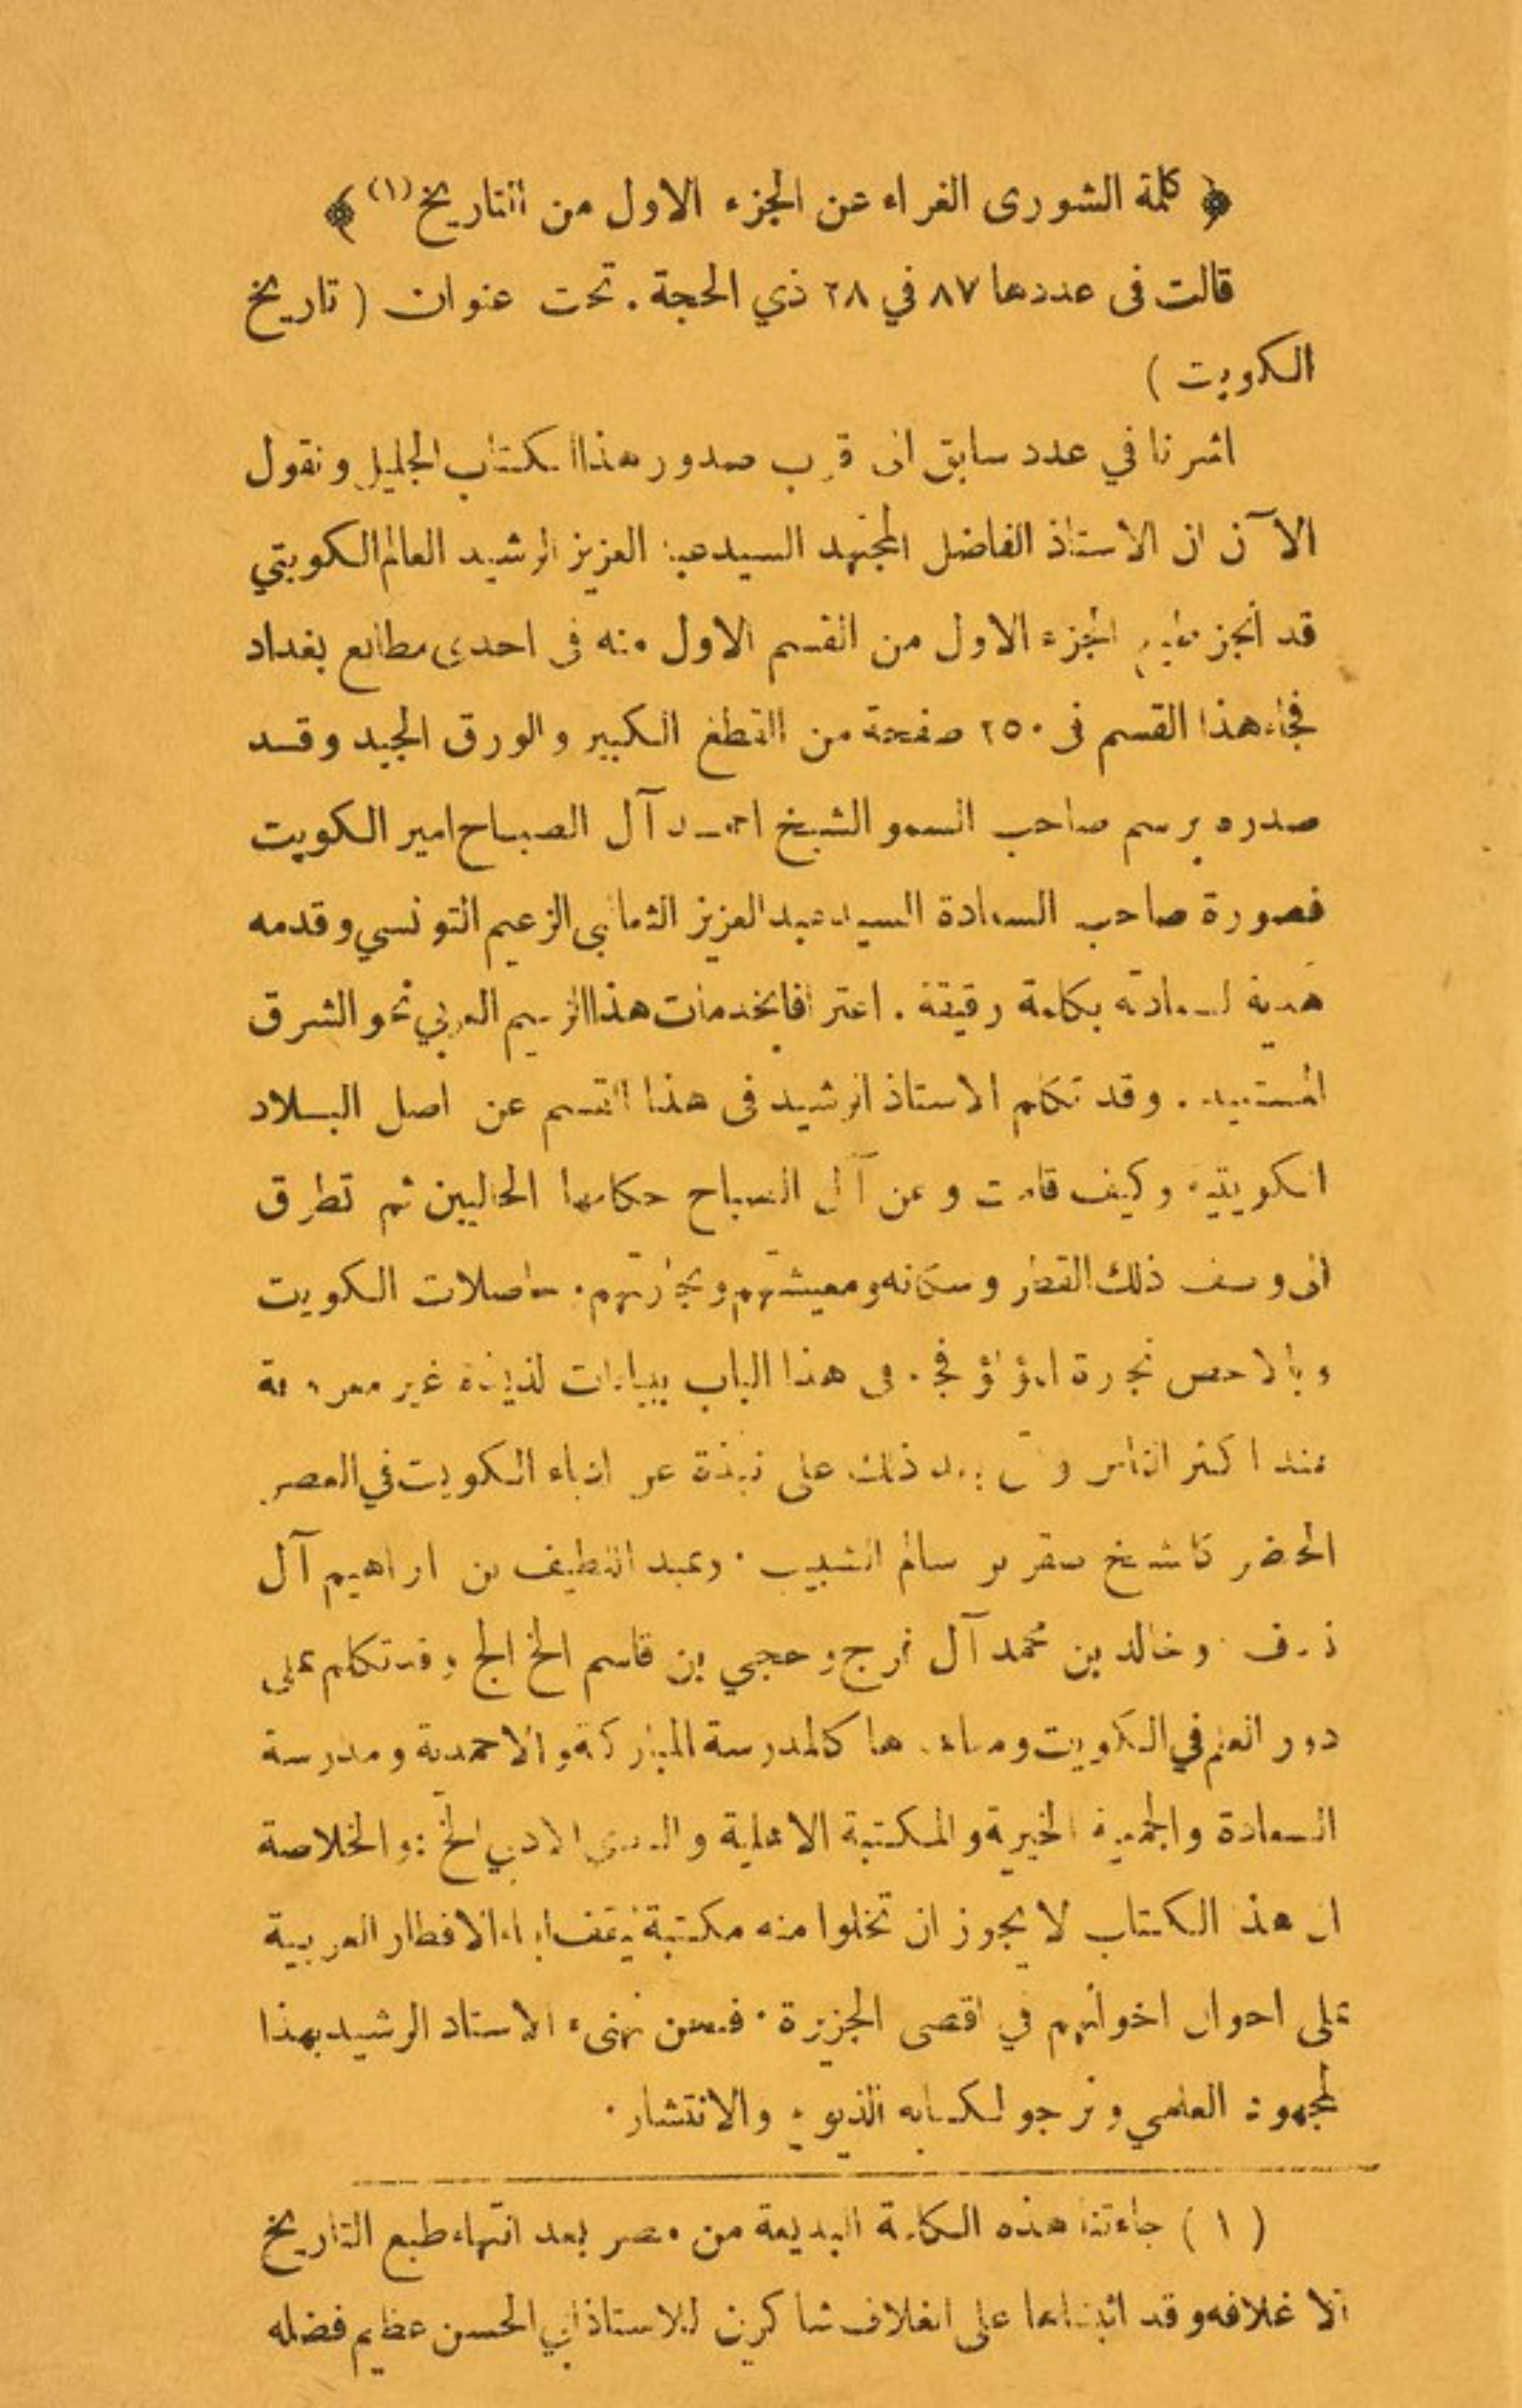 ﴿ كلمة الشورى الغراء عن الجزء الاول من التاريخ (١) ﴾
قالت فى عددها ٨٧ في ٢٨ ذي الحجة . تحت عنوان ( تاريخ
الكويت )
اشرنا في عدد سابق الى قرب صدور هذا الكتاب الجليل ونقول
الآن ان الاستاذ الفاضل المجتهد السيد عبد العزيز الرشيد العالم الكويتي
قد أنجز طبع الجزء الاول من القسم الاول منه فى احدى مطابع بغداد
فجاء هذا القسم فى ٢٥٠ صفحة من القطع الكبير والورق الجيد وقد
صدره برسم صاحب السمو الشيخ احمد آل الصباح امير الكويت
فصورة صاحب السعادة السيد عبد العزيز الثعالبي الزعيم التونسي وقدمه
هدية لسعادته بكلمة رقيقة . اعترافا بخدمات هذا الزعيم العربي نحو الشرق
. وقد تكلم الاستاذ الرشيد فى هذا القسم عن اصل البلاد
الكويتية وكيف قامت وعن آل الصباح حكامها الحاليين ثم تطرق
الى وصف ذلك القطر وسكانه ومعيشتهم وتجارتهم . حاصلات الكويت
وبالاخص تجارة اللؤلؤ فجاء فى هذا الباب ببيانات لذيذة غير معروفة
عند اكثر الناس بعد ذلك على نبذة عن ادباء الكويت في العصر
الحاضر كالشيخ صقر بن سالم الشبيب . وعبد اللطيف بن ابراهيم آل
نصف . وخالد بن محمد آل فرج وحجي بن قاسم الخ الخ وقد تكلم على
دور العلم في الكويت ومعاهدها كالمدرسة المباركة والاحمدية ومدرسة
السعادة والجمعية الخيرية والمكتبة الاهلية والنادي الادبي الخ . والخلاصة
ان هذا الكتاب لا يجوز ان تخلوا منه مكتبة ليقف ابناء الاقطار العربية
على احوال اخوانهم في اقصى الجزيرة . فنحن نهنىء الاستاذ الرشيد بهذا
المجهود العلمي ونرجو لكتابه الذيوع والانتشار .
( ١ ) جاءتنا هذه الكلمة البديعة من مصر بعد انتهاء طبع التاريخ
الا غلافه وقد اثبتناها على الغلاف شاكرين للاستاذ ابي الحسن عظيم فضله